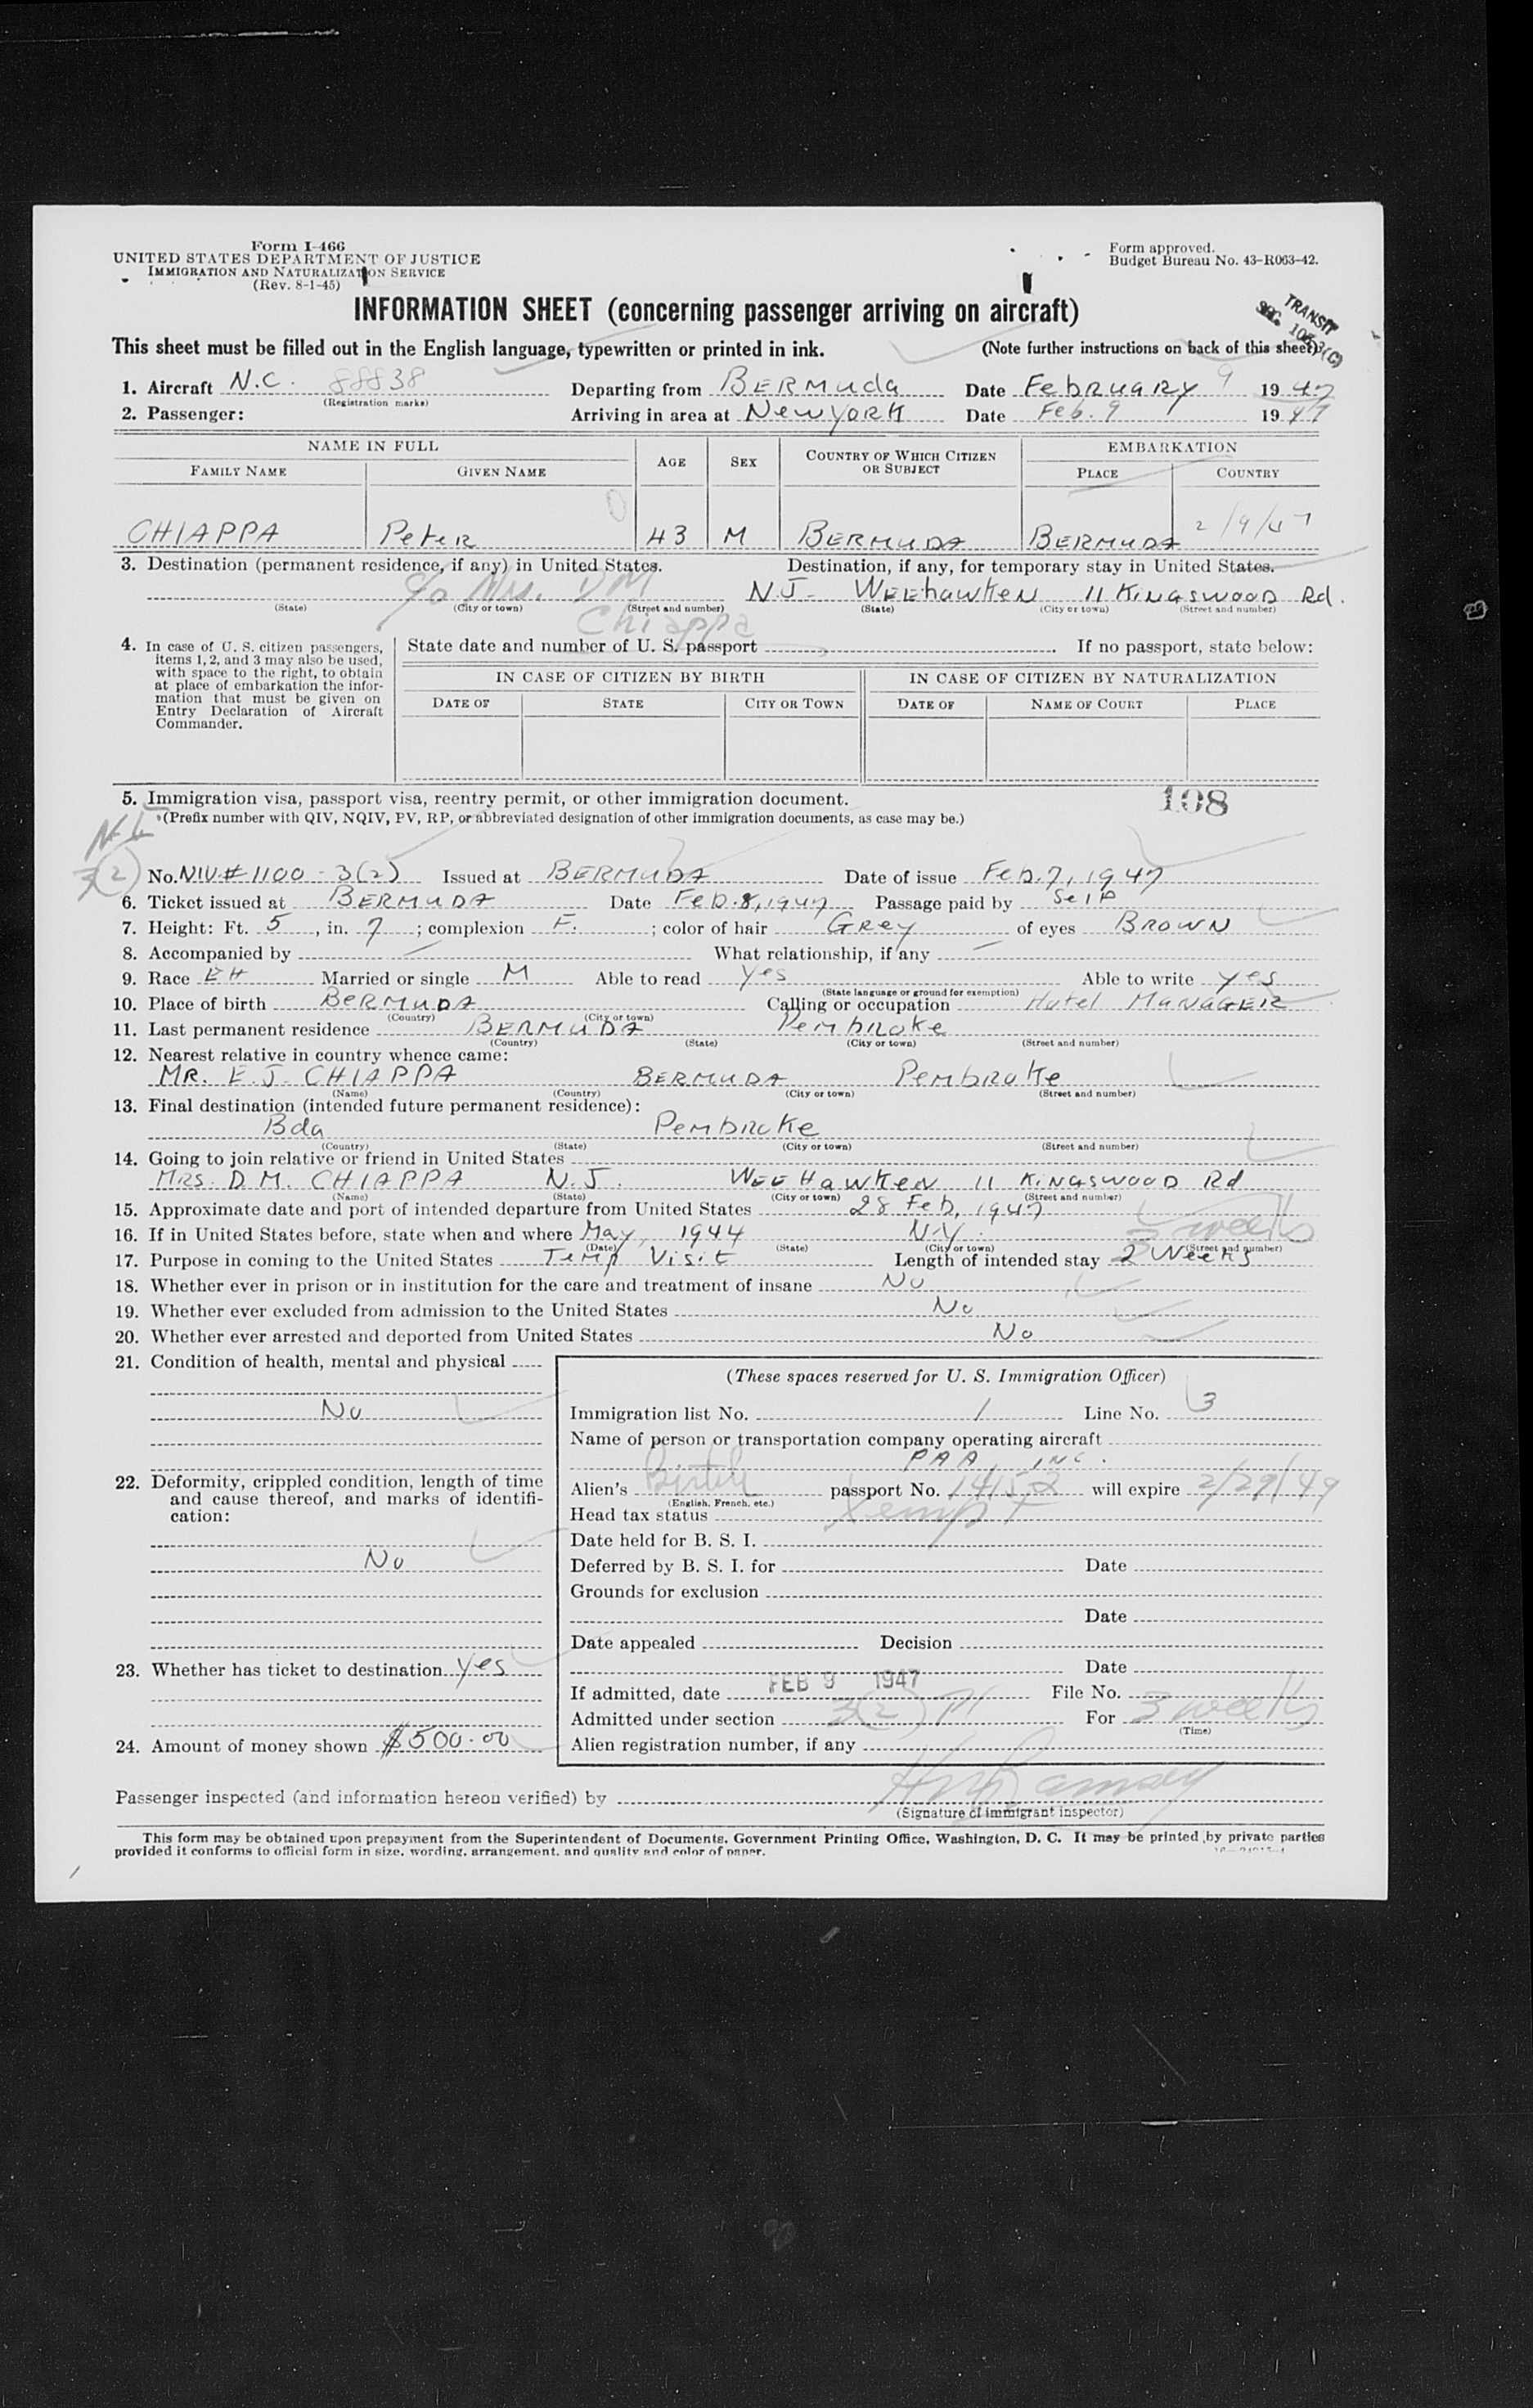 Form I-466
UNITED STATES DEPARTMENT OF JUSTICE
IMMIGRATION AND NATURALIZATION SERVICE
(Rev. 8-1-45)
Form approved.
Budget Bureau No. 43-R063-42.
INFORMATION SHEET (concerning passenger arriving on aircraft)
TRANSIT
This sheet must be filled out in the English language, typewritten or printed in ink. (Note further instructions on back of this sheet)
1. Aircraft N.C. 88838 Departing from BERMUDA Date FEBRUARY 9 1947
(Registration marks)
2. Passenger: Arriving in area at New YORK Date Feb. 9 1947
NAME IN FULL AGE SEX COUNTRY OF WHICH CITIZEN OR SUBJECT EMBARKATION
FAMILY NAME GIVEN NAME PLACE COUNTRY
CHIAPPA Peter 43 M BERMUDA BERMUDA 2/9/47
3. Destination (permanent residence, if any) in United States. Destination, if any, for temporary stay in United States.
c/o Mrs. DM Chiappa N.J. WEEhawKen 11 KINGSWOOD Rd.
(State) (City or town) (Street and number) (State) (City or town) (Street and number)
4. In case of U. S. citizen passengers, items 1, 2, and 3 may also be used, with space to the right, to obtain at place of embarkation the information that must be given on Entry Declaration of Aircraft Commander.
State date and number of U. S. passport If no passport, state below:
IN CASE OF CITIZEN BY BIRTH IN CASE OF CITIZEN BY NATURALIZATION
DATE OF STATE CITY OR TOWN DATE OF NAME OF COURT PLACE
5. Immigration visa, passport visa, reentry permit, or other immigration document. 108
(Prefix number with QIV, NQIV, PV, RP, or abbreviated designation of other immigration documents, as case may be.)
3(2)
No. NIV# 1100 - 3(2) Issued at BERMUDA Date of issue Feb. 7, 1947
6. Ticket issued at BERMUDA Date Feb. 8, 1947 Passage paid by Self
7. Height: Ft. 5, in. 7; complexion F.; color of hair Grey of eyes BROWN
8. Accompanied by — What relationship, if any —
9. Race EH Married or single M Able to read yes Able to write yes
(State language or ground for exemption)
10. Place of birth BERMUDA Calling or occupation Hotel MANAGER
(Country) (City or town)
11. Last permanent residence BERMUDA Pembroke
(Country) (State) (City or town) (Street and number)
12. Nearest relative in country whence came:
MR. E. J. CHIAPPA BERMUDA Pembroke
(Name) (Country) (City or town) (Street and number)
13. Final destination (intended future permanent residence):
Bda Pembroke
(Country) (State) (City or town) (Street and number)
14. Going to join relative or friend in United States
MRS. D. M. CHIAPPA N.J. WEEHawKen 11 KINGSWOOD Rd
(Name) (State) (City or town) (Street and number)
15. Approximate date and port of intended departure from United States 28 Feb, 1947
3 weeks
16. If in United States before, state when and where May, 1944 N.Y.
(Date) (State) (City or town) (Street and number)
17. Purpose in coming to the United States Temp Visit Length of intended stay 2 Weeks
18. Whether ever in prison or in institution for the care and treatment of insane No
19. Whether ever excluded from admission to the United States No
20. Whether ever arrested and deported from United States No
21. Condition of health, mental and physical
No
22. Deformity, crippled condition, length of time and cause thereof, and marks of identification:
No
23. Whether has ticket to destination yes
24. Amount of money shown $500.00
(These spaces reserved for U. S. Immigration Officer)
Immigration list No. 1 Line No. 3
Name of person or transportation company operating aircraft
PAA, INC.
Alien's British passport No. 14152 will expire 2/29/49
(English, French, etc.)
Head tax status Xempt
Date held for B. S. I.
Deferred by B. S. I. for Date
Grounds for exclusion
Date
Date appealed Decision
Date
If admitted, date FEB 9 1947 File No.
Admitted under section 3(2) For 3 weeks
(Time)
Alien registration number, if any
Passenger inspected (and information hereon verified) by
(Signature of immigrant inspector)
This form may be obtained upon prepayment from the Superintendent of Documents, Government Printing Office, Washington, D. C. It may be printed by private parties
provided it conforms to official form in size, wording, arrangement, and quality and color of paper.